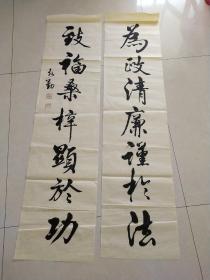 為政清廉謹於法
致福桑梓顯於功